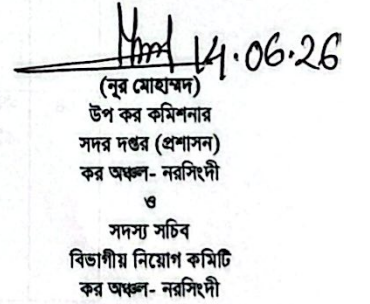 14.06.26
(নূর মোহাম্মদ)
উপ কর কমিশনার
সদর দপ্তর (প্রশাসন)
কর অঞ্চল- নরসিংদী
ও
সদস্য সচিব
বিভাগীয় নিয়োগ কমিটি
কর অঞ্চল- নরসিংদী